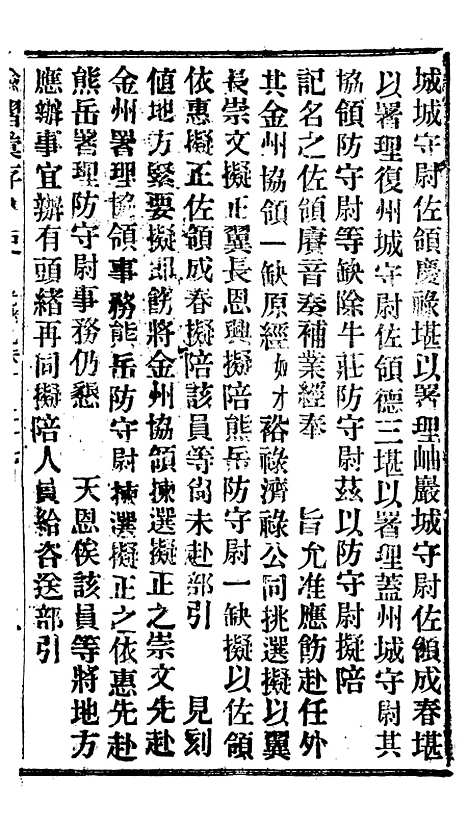 城城守尉佐領慶祿堪以署理岫巖城守尉佐領成春堪
以署理復州城守尉佐領德三堪以署理蓋州城守尉其
協領防守尉等缺除牛莊防守尉茲以防守尉擬陪
記名之佐領賡音奏補業經奉　旨允准應飭赴任外
其金州協領一缺原經　裕祿濟祿公同挑選擬以翼
長崇文擬正翼長恩興擬陪熊岳防守尉一缺擬以佐領
依惠擬正佐領成春擬陪該員等尙未赴部引　見刻
値地方緊要擬即飭將金州協領揀選擬正之崇文先赴
金州署理協領事務熊岳防守尉揀選擬正之依惠先赴
熊岳署理防守尉事務仍懇　天恩俟該員等將地方
應辦事宜辦有頭緒再同擬陪人員給咨送部引